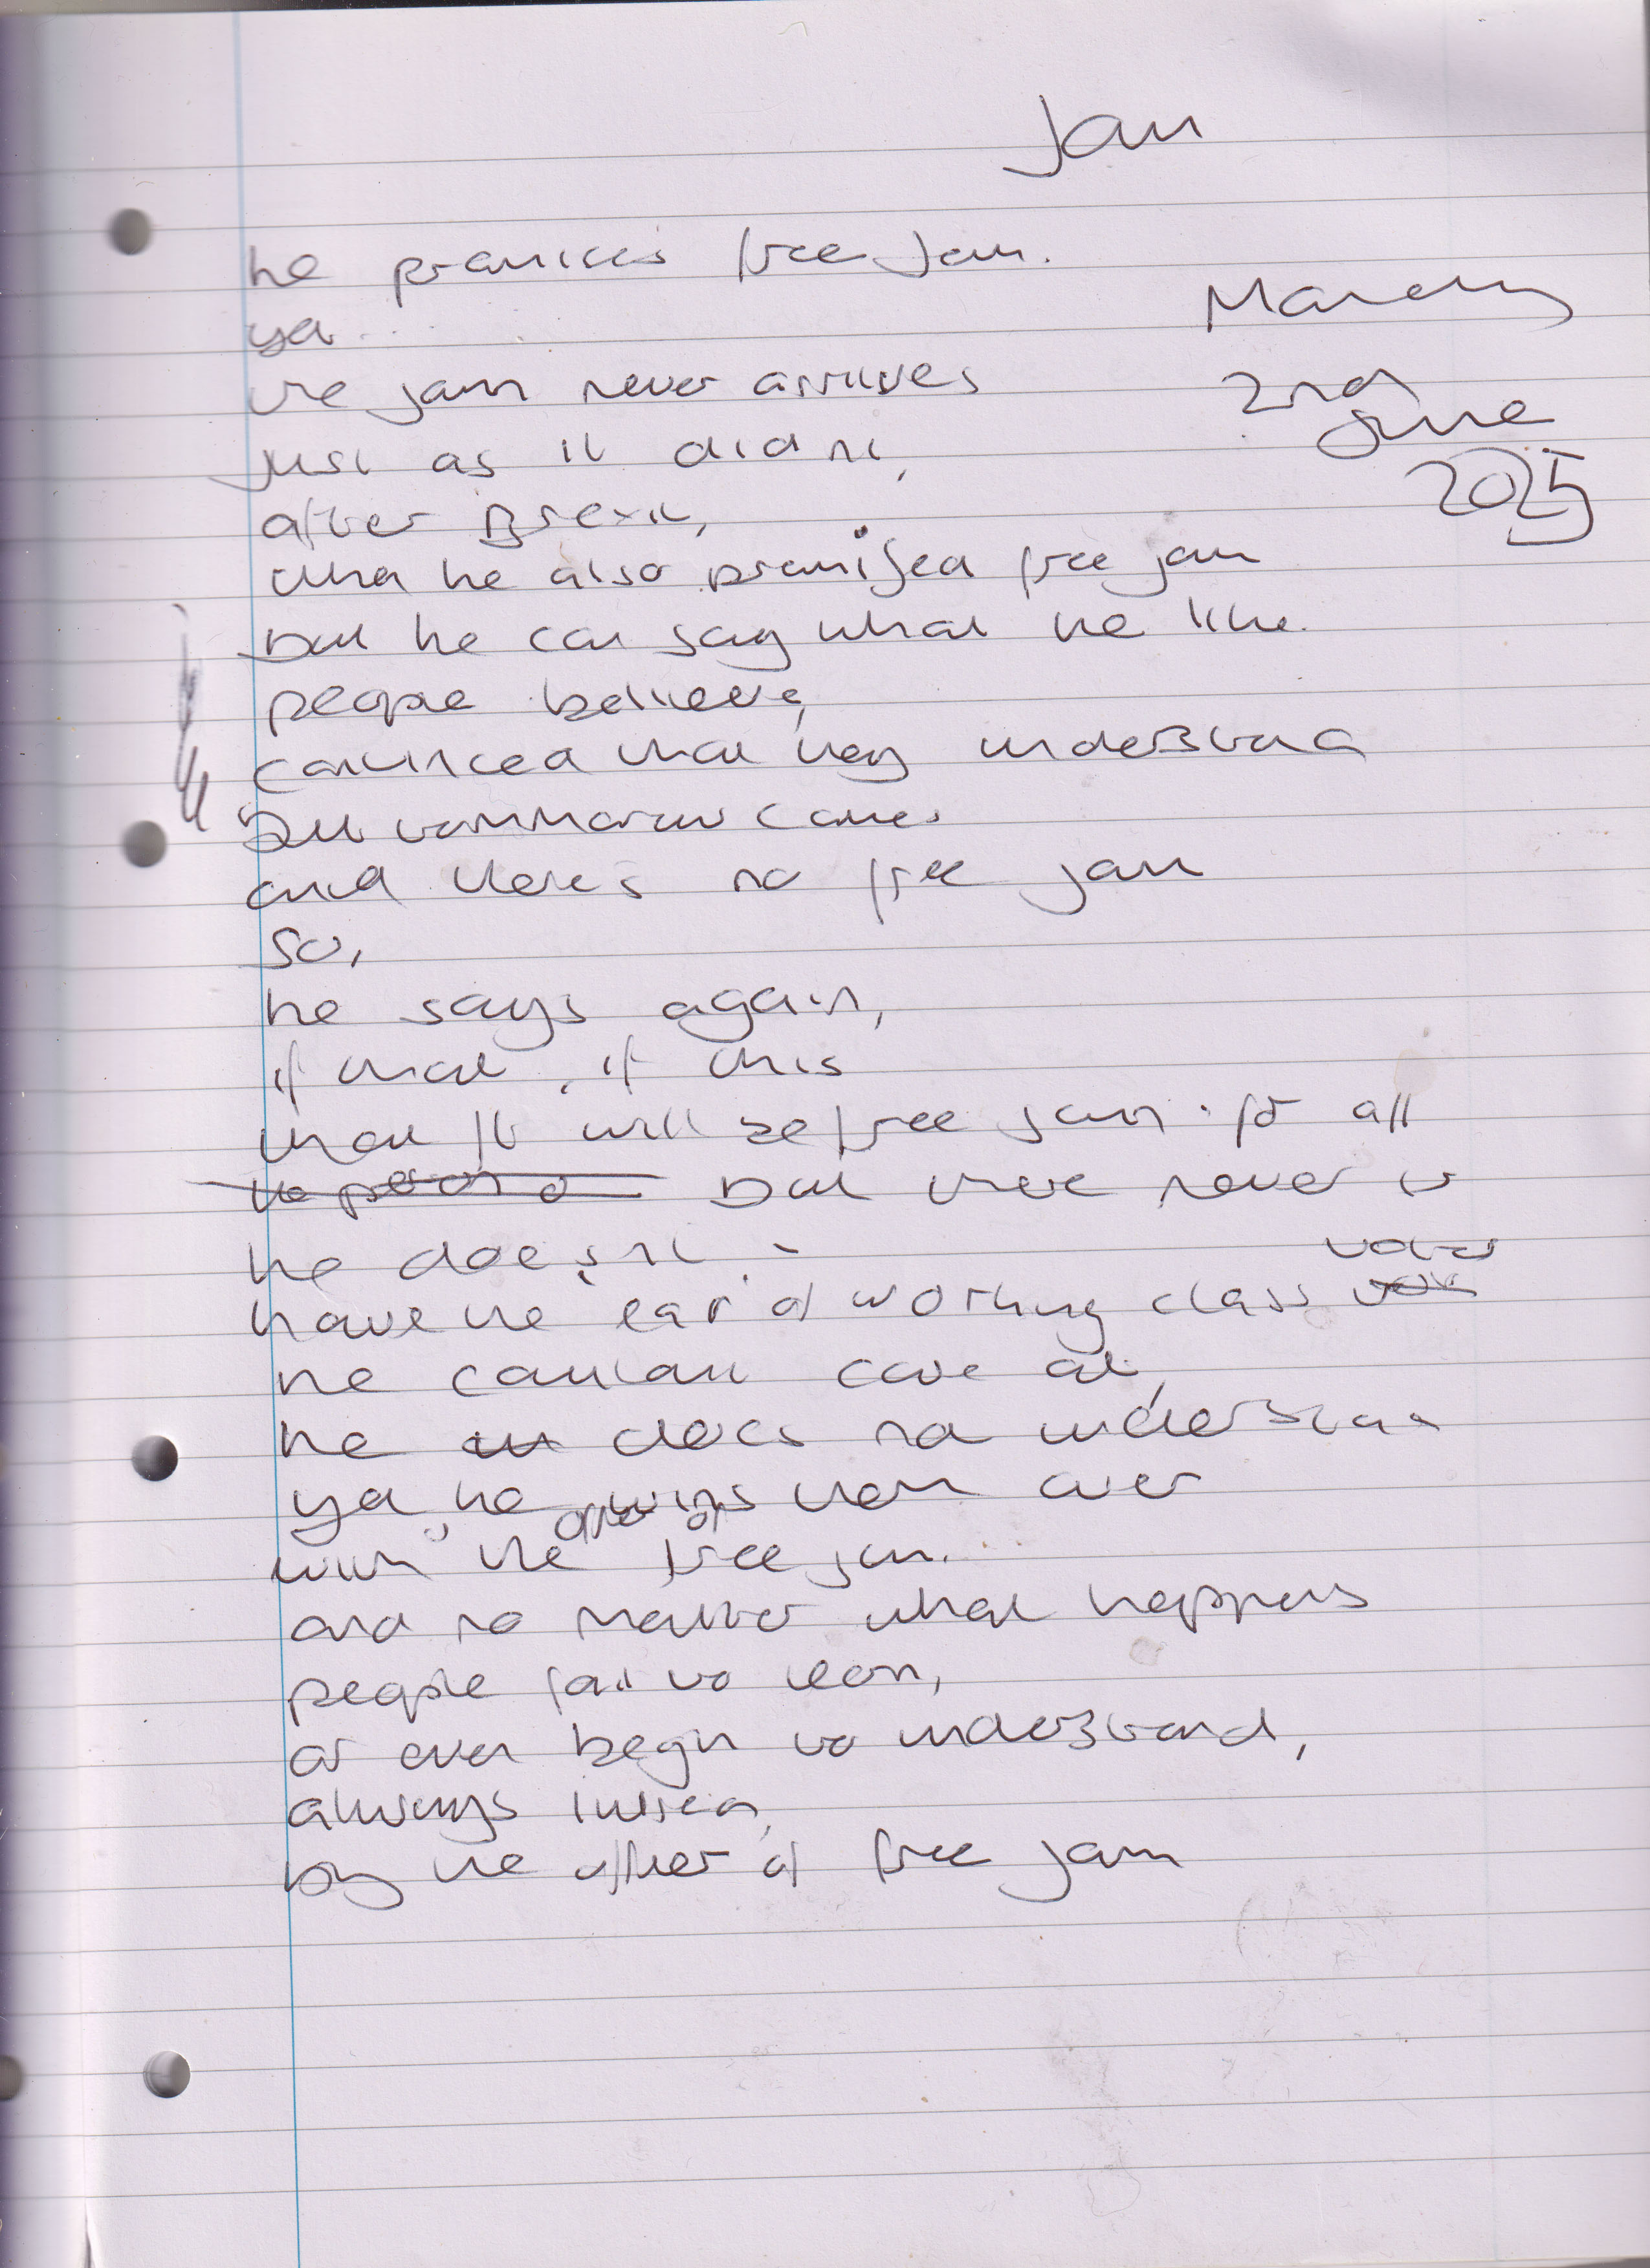 Jam
he promises free jam.
Monday
yet
2nd
June
2025
the jam never arrives
just as it didnt,
after Brexit,
when he also promised free jam
but he can say what he like
people believe,
convinced that they understand
but tommorow comes
and theres no free jam
so,
he says again,
if that, if this
then it will be free jam for all
but there never is
he doesnt
have the ear of working class voters
he cannot care at,
he does not understand
yet, he wins them over
with the offer of free jam.
and no matter what happens
people fail to learn,
or even begin to understand,
always
by the offer of free jam